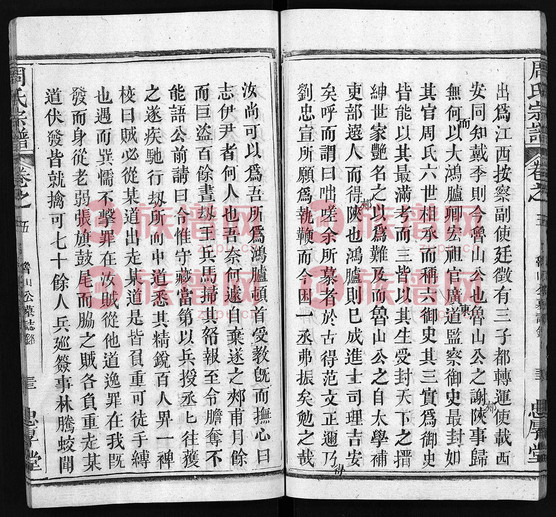 周氏宗譜
卷之
五
出爲江西按察副使廷徵有三子都轉運使載西
安同知戴季則今魯山公也魯山公之謝陝事歸
無何以大鴻臚卿宏祖官廣道監察御史最封如
其官周氏六世相承而稱六御史其三質爲御史
皆能以其最滿考而三皆以其生受封天下之搢
紳世家艷名之以爲難及而魯山公之自太學補
吏部選人而得狹也鴻臚則巳成進士司理吉安
矣呼而謂曰咄嗟余所慕者於古得范文正邇乃
劉忠宣所領郡而今輿而丞郡
忠厚堂
汝尚可以爲吾所爲鴻臚頓首受教旣而撫心曰
志伊尹者何人也吾奈何遽自棄遂之郟甫月餘
而巨盜百餘晝刧王兵馬掃
能語公前請曰今惟守藏當第以兵授丞往獲
之遂疾馳行刧所而中道悉其精銳百人畀一裨
校曰賊必從某道出走某道是皆負重可徒手縛
也遇而巽懦不擊罪在汝賊從他道逸罪在我旣
發而身從老弱張旗鼓尾而脇之賊各負重走某
道伏發皆就擒可七十餘人兵廵簽事林騰蛟聞
周氏宗譜
卷之
五
魯山公墓誌銘
三
忠厚堂
族譜网